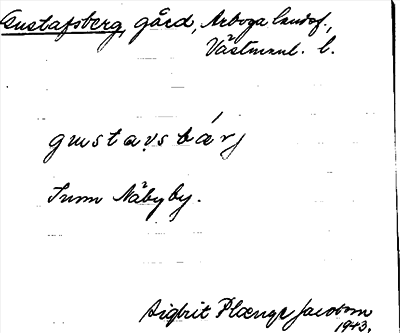 Gustafsberg, gård, Arboga landsf.,
Västmanl. l.
gustavsbárj
Inom Näbyby.
Sigbrit Plænge Jacobson
1943.